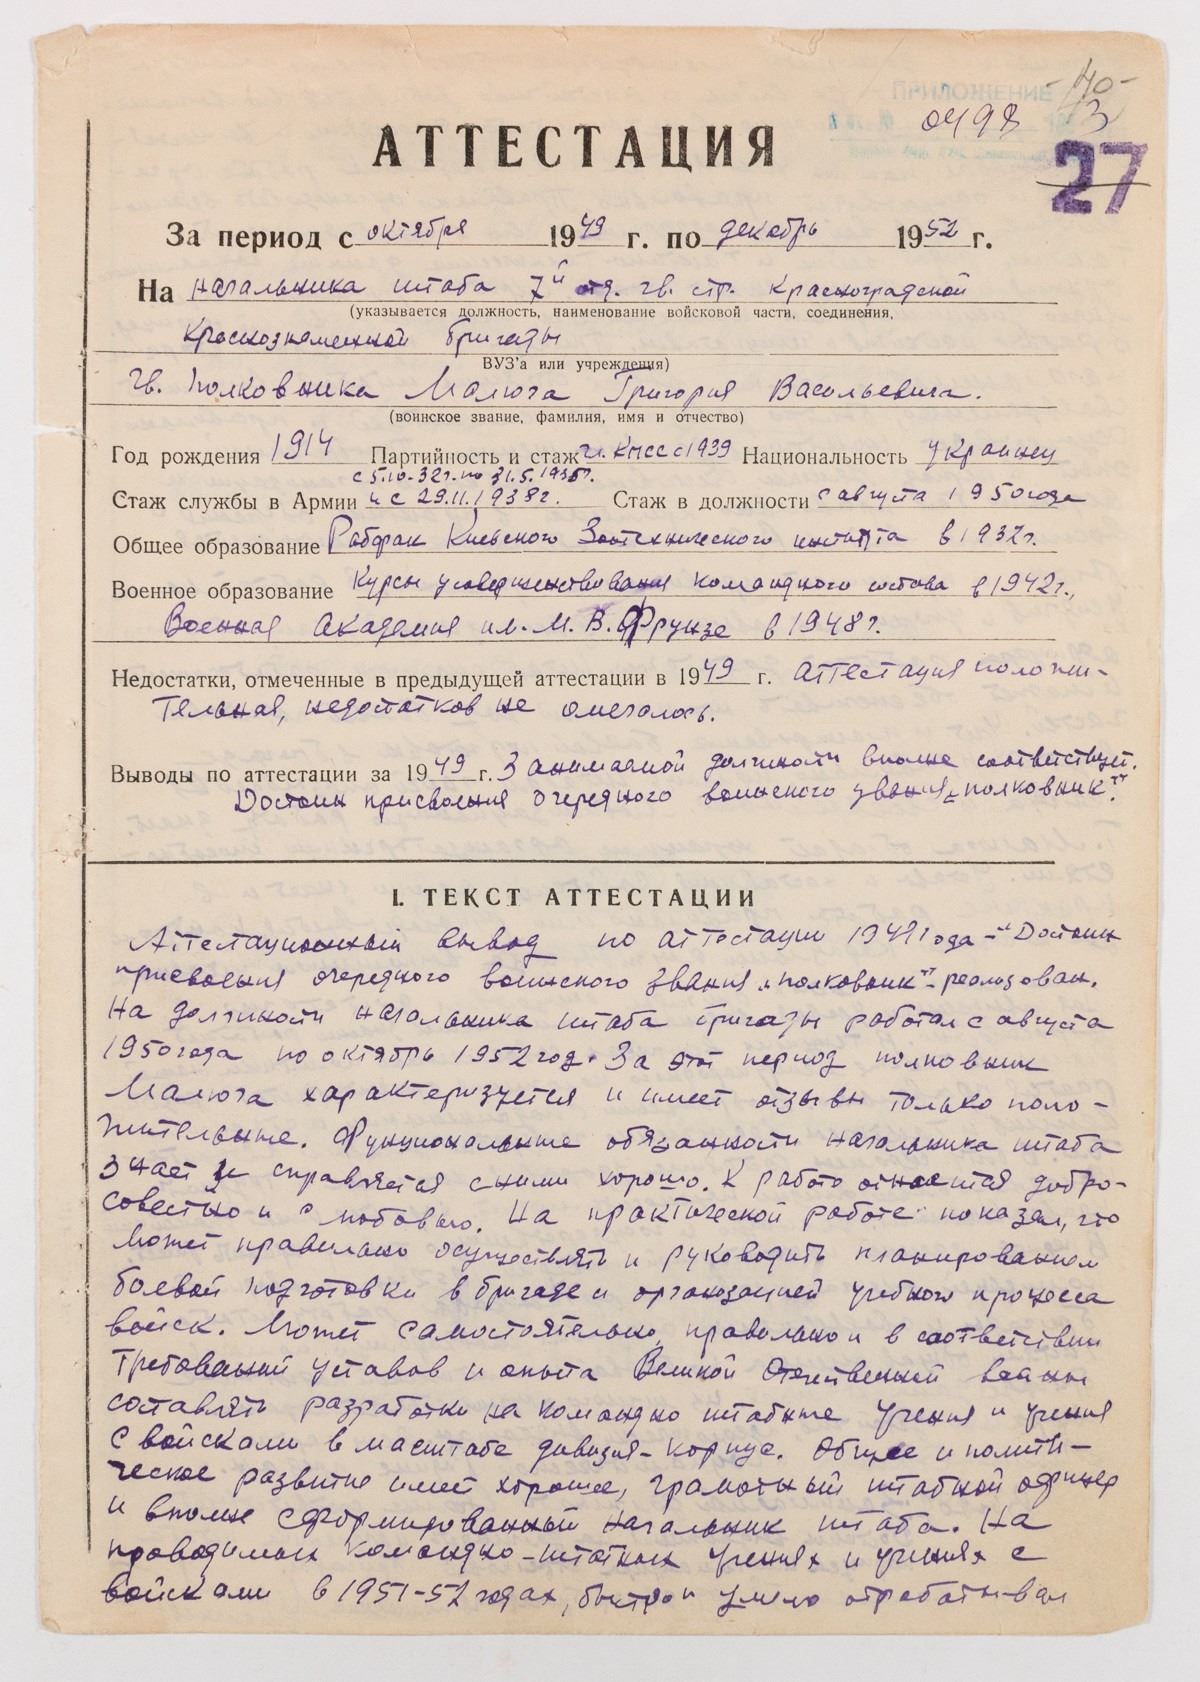 ПРИЛОЖЕНИЕ -40-
0498 3
27
АТТЕСТАЦИЯ
За период с октября 1949 г. по декабрь 1952 г.
На начальника штаба 7й отд. гв. стр. Красноградской
(указывается должность, наименование войсковой части, соединения,
Краснознаменной бригады
ВУЗ'а или учреждения)
гв. полковника Малюга Григория Васильевича.
(воинское звание, фамилия, имя и отчество)
Год рождения 1914 Партийность и стаж чл. КПСС с 1939 Национальность украинец
с 5.10.32г. по 31.5.1935г.
Стаж службы в Армии и с 29.11.1938г. Стаж в должности с августа 1950 года
Общее образование Рабфак Киевского Зоотехнического института в 1932г.
Военное образование Курсы усовершенствования командного состава в 1942г.,
Военная Академия им. М. В. Фрунзе в 1948г.
Недостатки, отмеченные в предыдущей аттестации в 1949 г. аттестация положи-
тельная, недостатков не омечалось.
Выводы по аттестации за 1949 г. Занимаемой должности вполне соответствует.
Достоин присвоения очередного воинского звания „полковник".
I. ТЕКСТ АТТЕСТАЦИИ
Аттестационный вывод по аттестации 1949 года – „Достоин
присвоения очередного воинского звания „полковник" – реализован.
На должности начальника штаба бригады работал с августа
1950 года по октябрь 1952 год. За этот период полковник
Малюга характеризуется и имеет отзывы только поло-
жительные. Функциональные обязанности начальника штаба
знает и справляется с ними хорошо. К работе относится добро-
совестно и с любовью. На практической работе показал, что
может правильно осуществлять и руководить планированием
боевой подготовки в бригаде и организацией учебного процесса
войск. Может самостоятельно, правильно и в соответствии
требований уставов и опыта Великой Отечественной войны
составлять разработки на командно штабные учения и учения
с войсками в масштабе дивизия – корпус. Общее и полити-
ческое развитие имеет хорошее, грамотный штабной офицер
и вполне сформированный начальник штаба. На
проводимых командно-штабных учениях и учениях с
войсками в 1951-52 годах, быстро и умело отрабатывал